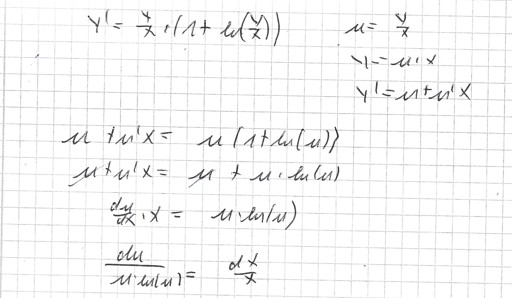 y' = y/x · (1 + ln(y/x))
u = y/x
y = u · x
y' = u + u'x
u + u'x = u (1 + ln(u))
u + u'x = u + u · ln(u)
du/dx · x = u · ln(u)
du/(u · ln(u)) = dx/x